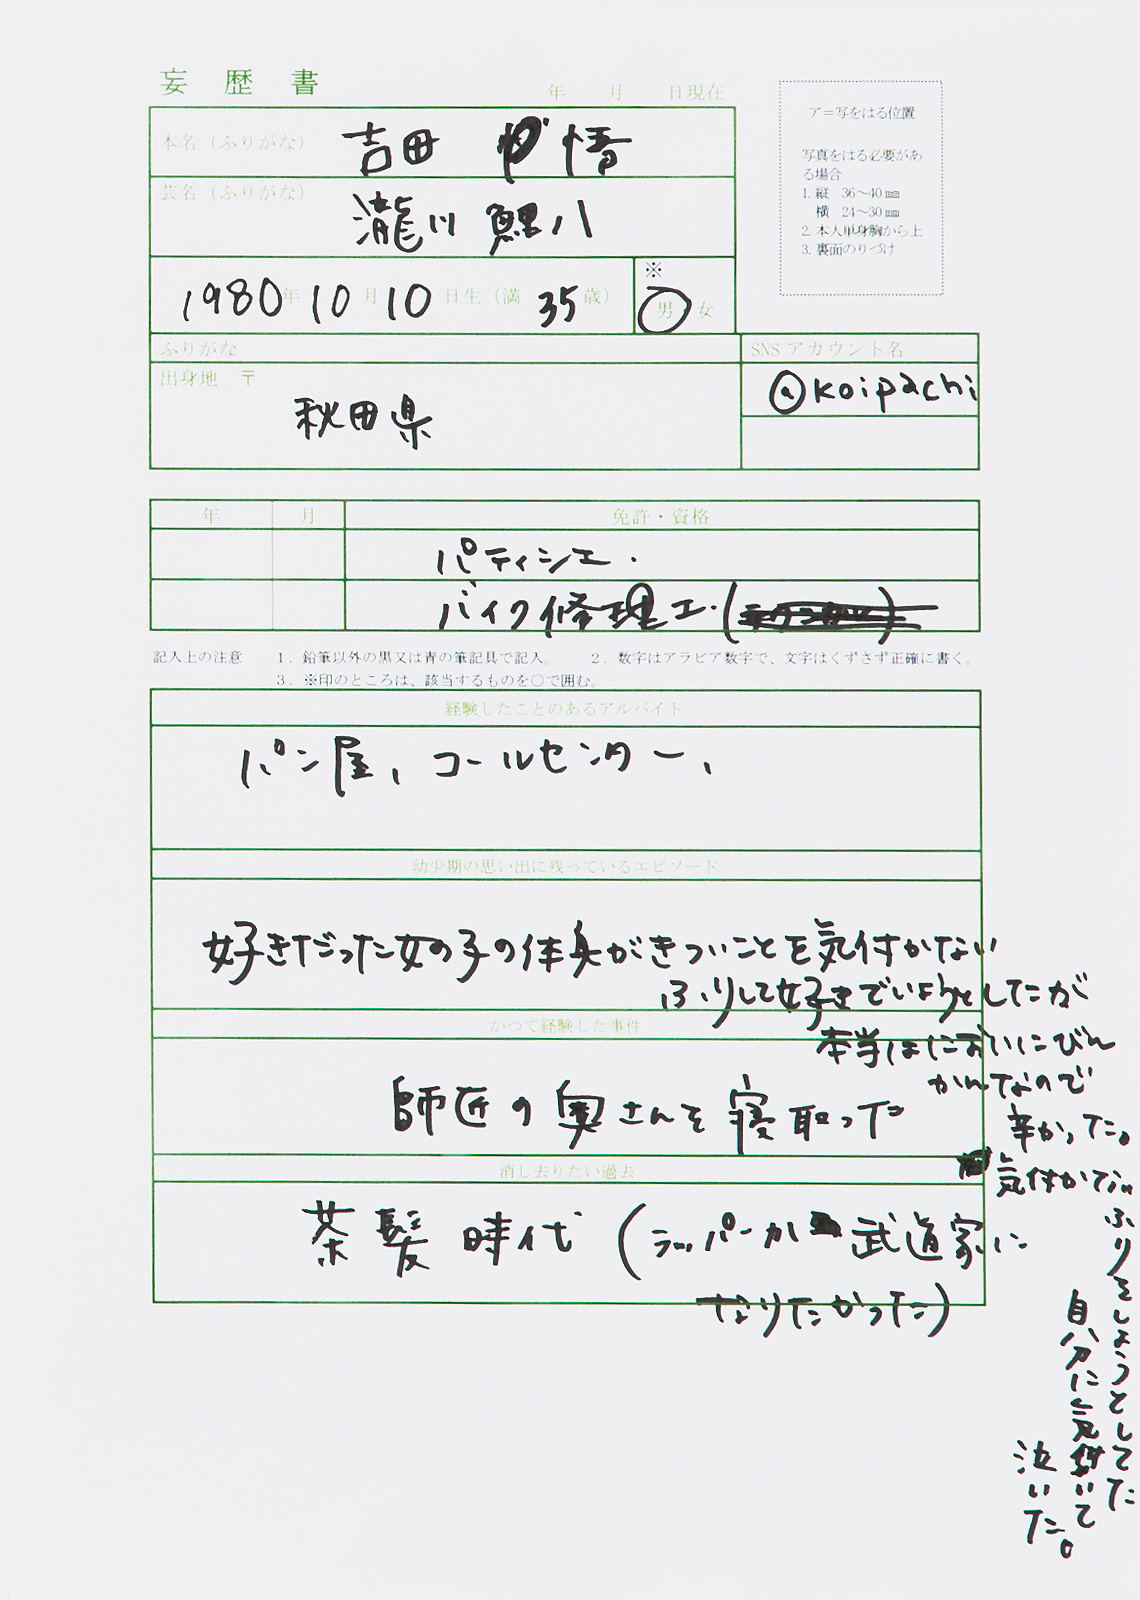 妄歴書
年 月 日現在
ア=写をはる位置
写真をはる必要があ
る場合
1. 縦 36～40㎜
横 24～30㎜
2. 本人単身胸から上
3. 裏面のりづけ
本名（ふりがな） 吉田 悟
芸名（ふりがな） 瀧川 鯉八
1980年 10月 10日生（満 35歳）
※
男 女
ふりがな
出身地 〒
秋田県
SNS アカウント名
@koipachi
年 月 免許・資格
パティシエ.
バイク修理工.(
記入上の注意 1. 鉛筆以外の黒又は青の筆記具で記入。 2. 数字はアラビア数字で、文字はくずさず正確に書く。
3. ※印のところは、該当するものを○で囲む。
経験したことのあるアルバイト
パン屋、コールセンター、
幼少期の思い出に残っているエピソード
好きだった女の子の体臭がきついことを気付かない
ふりして好きでいようとしたが
本当はにおいにびん
かんなので
辛かった。
気付かない
ふりをしようとしてた
自分に気付いて
泣いた。
かつて経験した事件
師匠の奥さんを寝取った
消し去りたい過去
茶髪時代（ラッパーか武道家に
なりたかった）